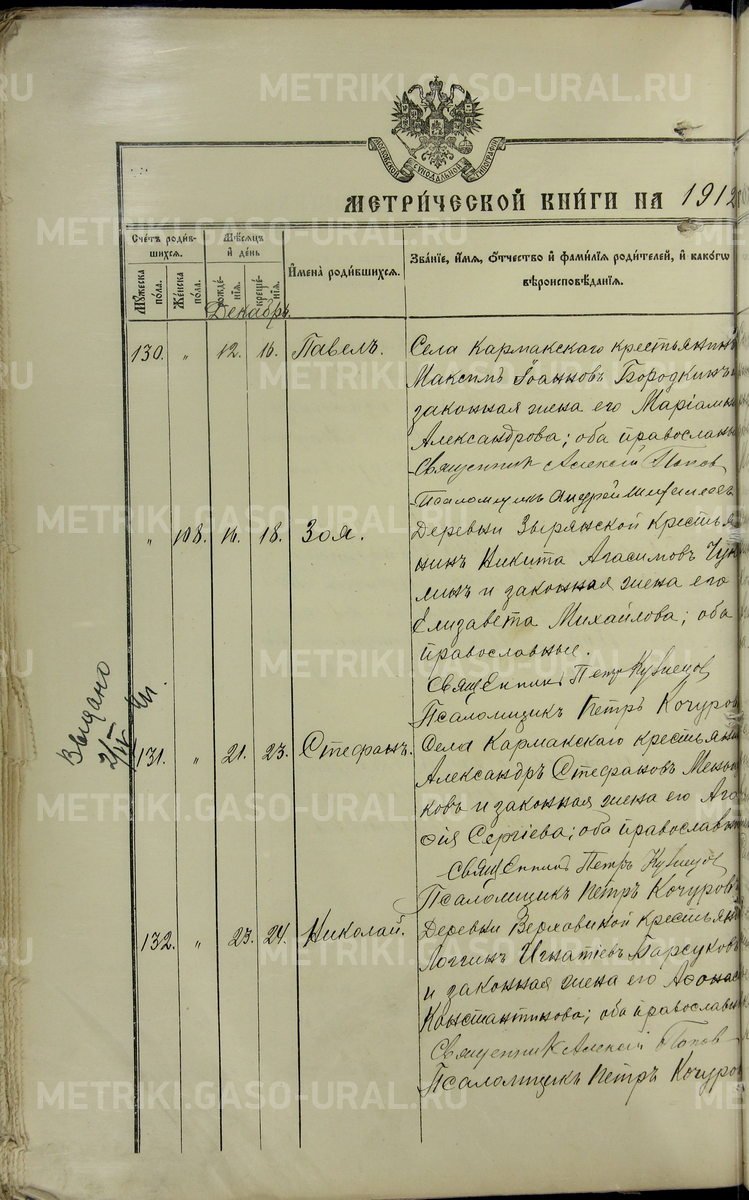 METRIKI.GASO-URAL.RU
МОСКОВСКОЙ СѴНОДАЛЬНОЙ ТИПОГРАФІИ
МЕТРИ́ЧЕСКОЙ КНИ́ГИ НА 1912
Счетъ роди́вшихся.
Мѣсяцъ и де́нь
Имена̀ роди́вшихся.
Зва́ніе, и́мя, о́тчество и фами́лія роди́телей, и како́гѡ вѣроисповѣ́данія.
Му́жеска по́ла.
Же́нска по́ла.
рожде́нія.
креще́нія.
Декабрь.
130. " 12. 16. Павелъ. Села Кармакскаго крестьянинъ
Максимъ Іоанновъ Бородкинъ и
законная жена его Маріамна
Александрова; оба православны
Священникъ Алексій Попов
Псаломщикъ Андрей
" 108. 16. 18. Зоя. Деревни Зырянской крестья
нинъ Никита Агасимовъ Чук
минъ и законная жена его
Елизавета Михайлова; оба
православные.
Священникъ Петръ Кузнецов
Псаломщикъ Петръ Кочуров
Выдано
131. " 21. 23. Стефанъ. Села Кармакскаго крестьяни
Александръ Стефановъ Менши
ковъ и законная жена его Ага
ѳія Сергіева; оба православн
Священникъ Петръ Кузнецов
Псаломщикъ Петръ Кочуровъ
132. " 23. 24. Николай. Деревни Верховиной крестьяни
Логгинъ Игнатіевъ Барсуковъ
и законная жена его Аѳонас
Константинова; оба православн
Священникъ Алексій Попов
Псаломщикъ Петръ Кочуров